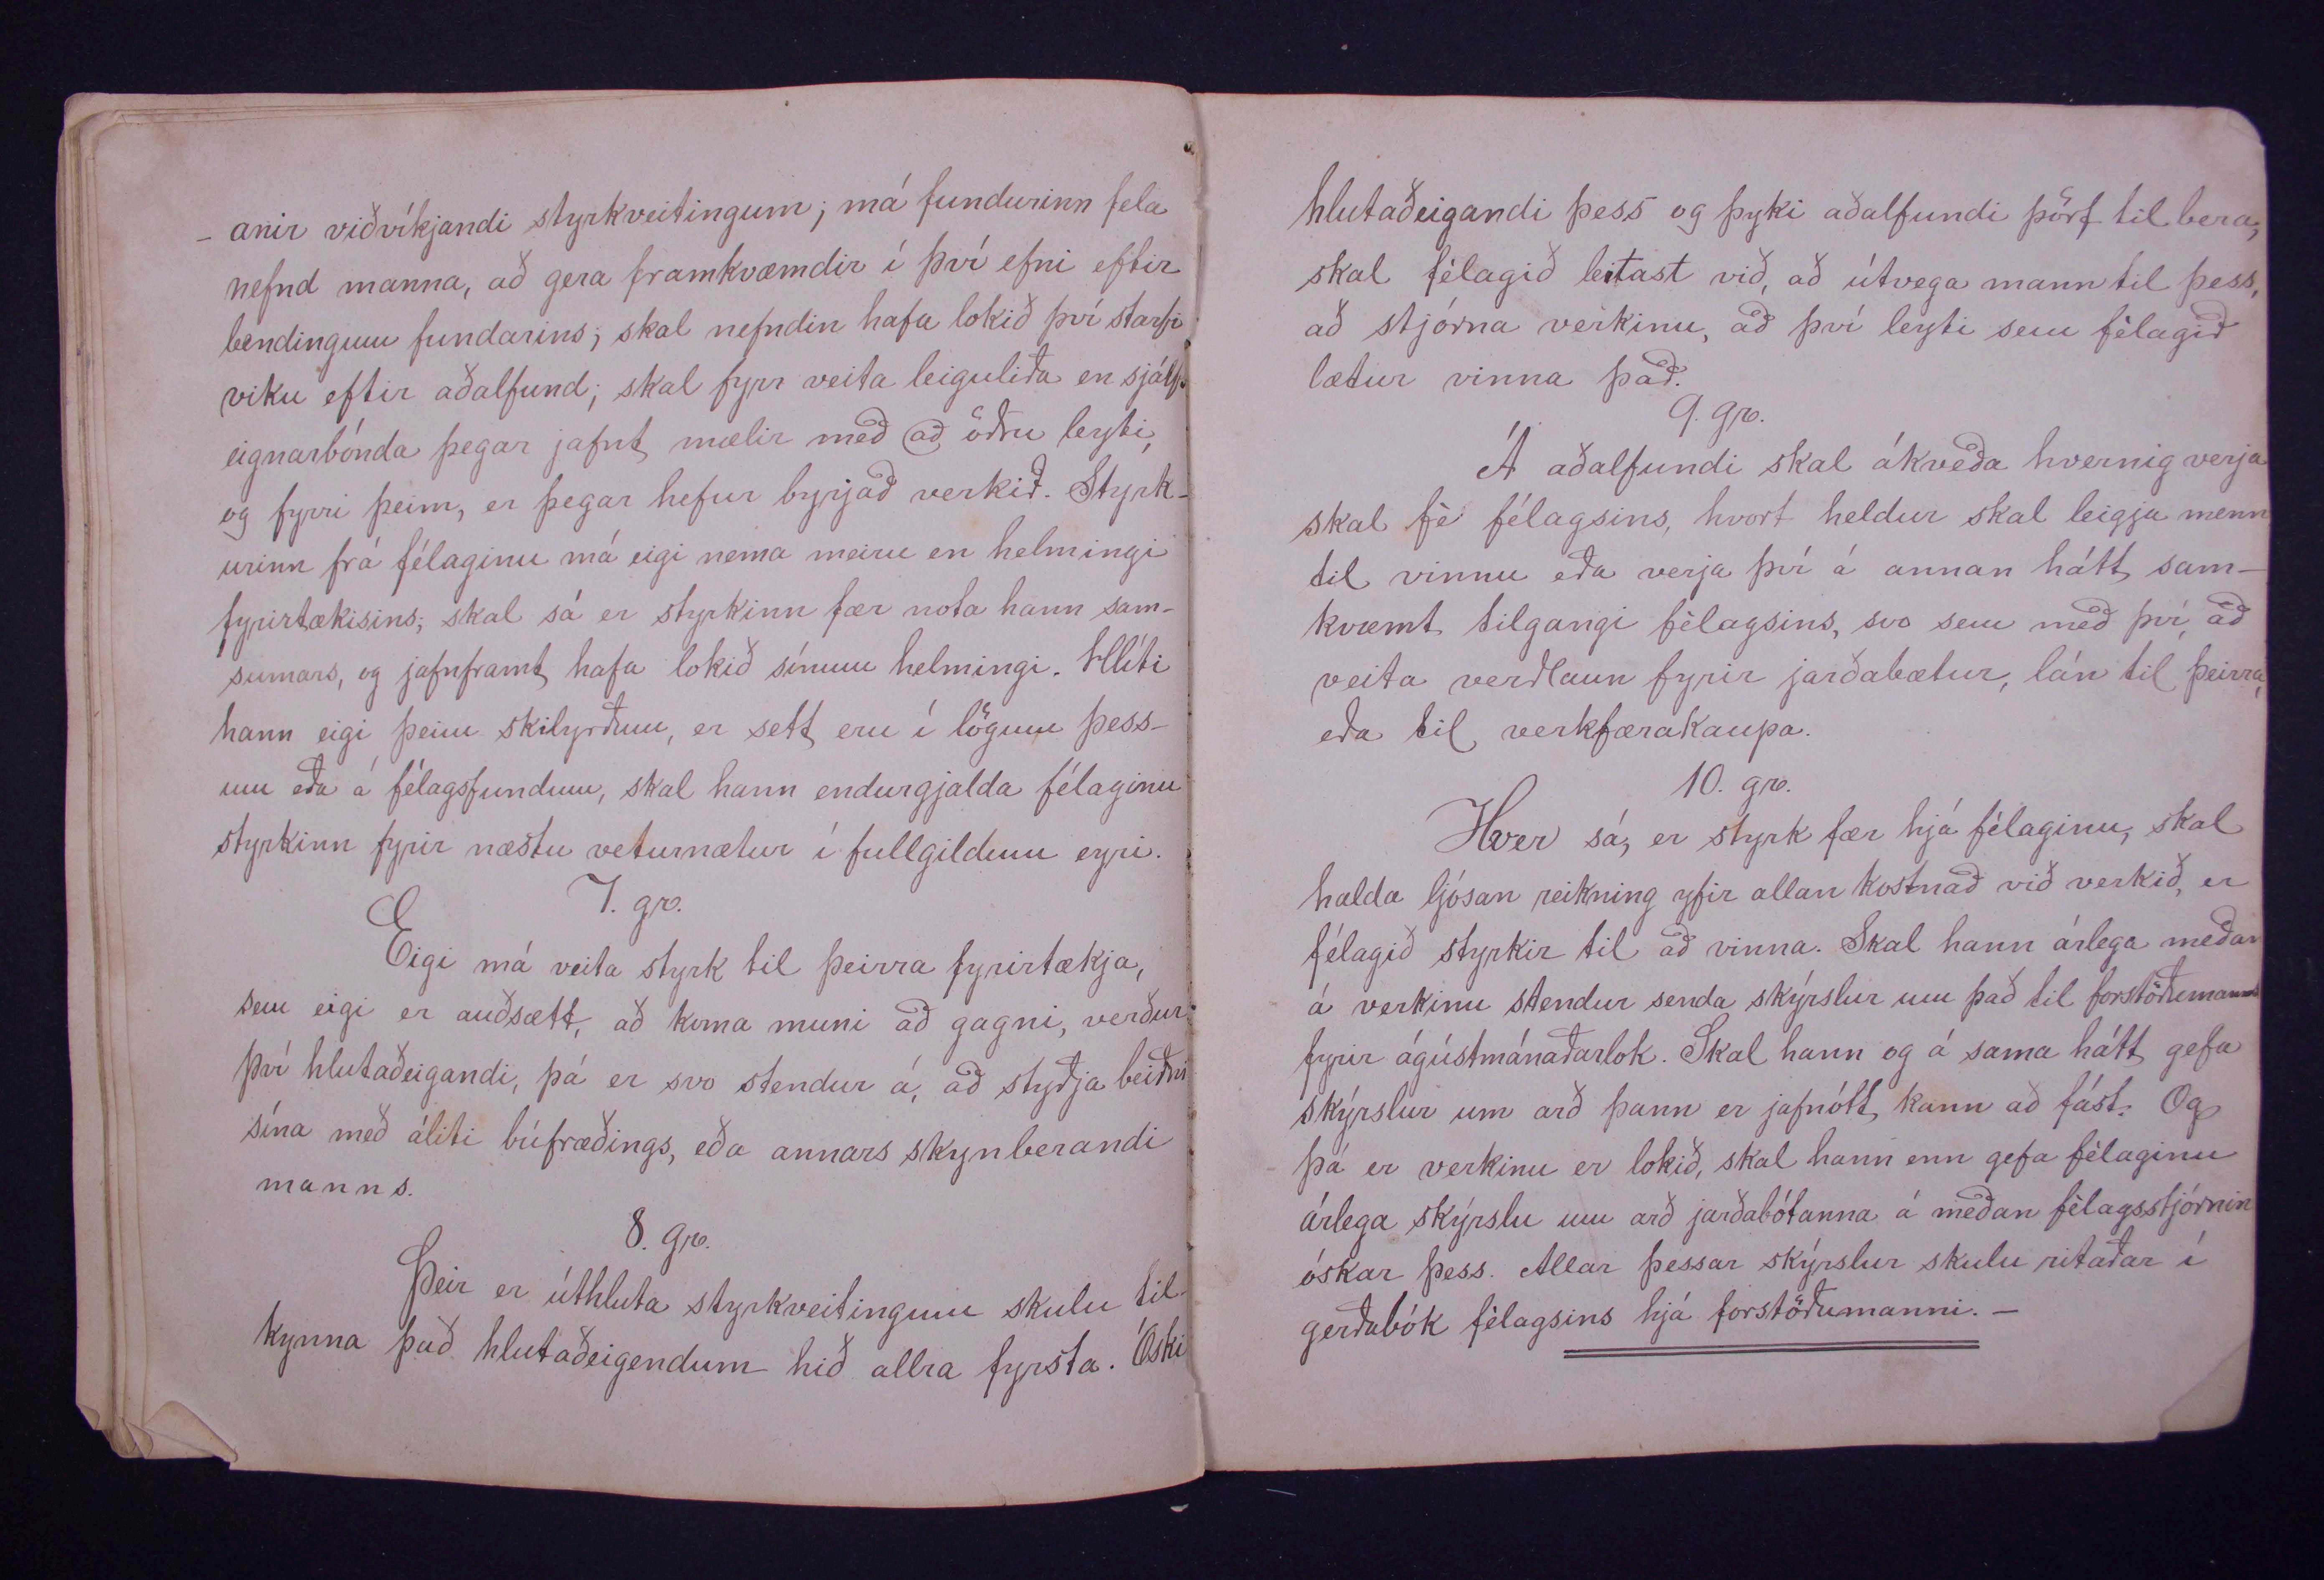 - anir viðvíkjandi styrkveitingum; má fundurinn fela
nefnd manna, að gera framkvæmdir í því efni eftir
bendingum fundarins; skal nefndin hafa lokið því starfi
viku eftir aðalfund; skal fyrr veita leiguliða en sjálfs-
eignarbónda þegar jafnt mælir með að öðru leyti,
og fyrri þeim, er þegar hefur byrjað verkið. Styrk-
urinn frá félaginu má eigi nema meiru en helmingi
fyrirtækisins; skal sá er styrkinn fær nota hann sam-
sumars, og jafnframt hafa lokið sínum helmingi. Hlíti
hann eigi þeim skilyrðum, er sett eru í lögum þess-
um eða á félagsfundum, skal hann endurgjalda félaginu
styrkinn fyrir næstu veturnætur í fullgildum eyri.
7. gr.
Eigi má veita styrk til þeirra fyrirtækja,
sem eigi er auðsætt, að koma muni að gagni, verður
því hlutaðeigandi, þá er svo stendur á, að styðja beiðni
sína með áliti búfræðings, eða annars skynberandi
manns.
8. gr.
Þeir er úthluta styrkveitingum skulu til-
kynna það hlutaðeigendum hið allra fyrsta. Óski
hlutaðeigandi þess og þyki aðalfundi þörf til bera,
skal félagið leitast við, að útvega mann til þess,
að stjórna verkinu, að því leyti sem félagið
lætur vinna það.
9. gr.
Á aðalfundi skal ákveða hvernig verja
skal fé félagsins, hvort heldur skal leigja menn
til vinnu eða verja því á annan hátt sam-
kvæmt tilgangi félagsins, svo sem með því, að
veita verðlaun fyrir jarðabætur, lán til þeirra,
eða til verkfærakaupa.
10. gr.
Hver sá, er styrk fær hjá félaginu, skal
halda ljósan reikning yfir allan kostnað við verkið, er
félagið styrkir til að vinna. Skal hann árlega meðan
á verkinu stendur senda skýrslur um það til forstöðumanns
fyrir ágústmánaðarlok. Skal hann og á sama hátt gefa
skýrslur um arð þann er jafnótt kann að fást. Og
þá er verkinu er lokið, skal hann enn gefa félaginu
árlega skýrslu um arð jarðabótanna á meðan félagsstjórnin
óskar þess. Allar þessar skýrslur skulu ritaðar í
gerðabók félagsins hjá forstöðumanni. -